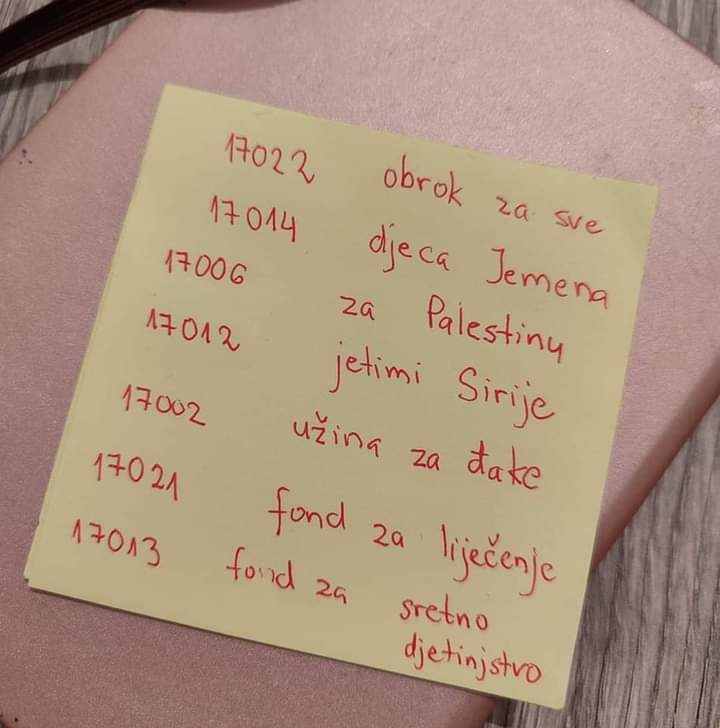 17022 obrok za sve
17014 djeca Jemena
17006 za Palestinu
17012 jetimi Sirije
17002 užina za đake
17021 fond za liječenje
17013 fond za sretno
djetinjstvo